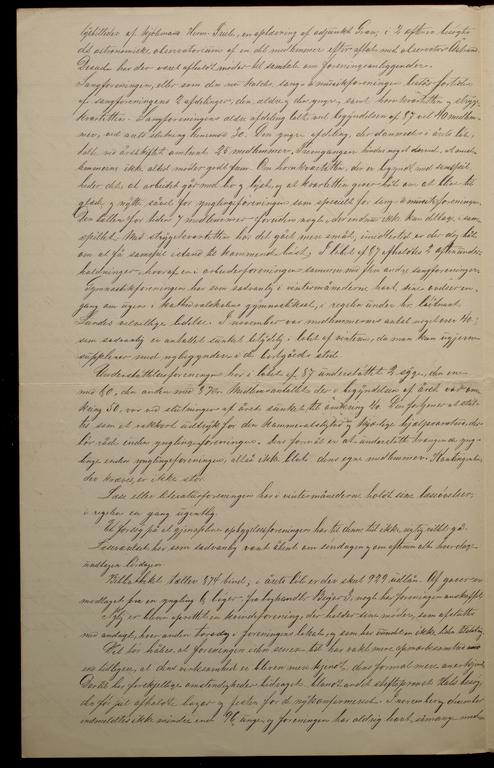 lysbilleder af Kjöbmand Herm. Friele, en oplæsning af adjunkt Gran; i 2 aftener besøgtes
det astronomiske observatorium af en del medlemmer efter aftale med observator Åstrand.
Desuden har der været afholdt møder til samtale om foreningsanliggender.
Sangforeningen, eller som den nu kaldes, sang- & musikforeningen består fortiden
af sangforeningens 2 afdelinger, den ældre og den yngre, samt hornkvartetten og stryge
kvartetten. Sangforeningens ældre afdeling talte ved begyndelsen af 87 ca 40 medlem-
mer, ved årets slutning henimod 30. Den yngre afdeling, der dannedes i årets løb,
talte ved årsskiftet omtrent 25 medlemmer. Fremgangen hindres noget derved, at med-
lemmerne ikke altid møder godt frem. Om hornkvartetten, der er begyndt med samspil,
heder det, at arbeidet går med liv og lyst, og at kvartetten giver håb om at blive til
glæde og nytte såvel for ynglingeforeningen som specielt for sang- & musikforeningen.
Den tæller for tiden 7 medlemmer foruden nogle, der endnu ikke kan deltage i sam-
spillet. Med strygekvartetten har det gået mere småt, imidlertid er der dog håb
om at få samspil istand til kommende høst. I løbet af 87 afholdtes 2 aftenunder-
holdninger, hvoraf en i arbeiderforeningen sammen med den andre sangforeninger.
Gymnastikforeningen har som sædvanlig i vintermånederne havt sine øvelser en-
gang om ugen i Kathedralskolens gymnastiksal, i regelen under hr. løitnant
Lunds velvillige ledelse. I november var medlemmernes antal noget over 40;
som sædvanlig er antallet sunket betydelig i løbet af vinteren, da man kun nogenl.
supplerer med nybegyndere i de bortgåedes sted.
Understøttelsesforeningen har i løbet af 87 understøttet 2 syge, den ene
med 60, den anden med 8 Kr. Medlemsantallet, der i begyndelsen af året var om-
kring 50, var ved slutningen af året sunket til omkring 40. Den fortjener at støt-
tes som et vakkert udtryk for den kammeratslighed og kjærlige hjælpsomhed, der
bør råde inden ynglingeforeningen. Dens formål er at understøtte trængende yng-
linge inden ynglingeforeningen, altså ikke blot dens egne medlemmer. Kontingenten,
der kræves, er ikke stor.
Læse eller literaturforeningen har i vintermånederne holdt sine læseøvelser,
i regelen en gang ugentlig.
Et forsøg på at gjenoplive opbyggelsesforeningen har til denne tid ikke rigtig villet gå.
Læseværelset har som sædvanlig været åbent om søndagen og om aftenen alle hverdage
undtagen lørdagen.
Bibliotheket tæller 874 bind; i årets løb er der sket 999 udlån. Af gaver er
modtaget fra en yngling 6 bøger, fra boghandler Beyer 3, nogle har foreningen anskaffet.
Nylig er bleven oprettet en kvindeforening, der holder sine møder, som afsluttes
med andagt, hver anden torsdag i foreningens lokale, og som har vundet en ikke liden tilslutning.
Det bør haabes, at foreningen i den senere tid har vakt mere opmærksomhed
end tidligere, at dens virksomhed er bleven mere kjendt, dens formål mere anerkjendt.
Dertil har forskjellige omstændigheder bidraget, blandt andet
den før jul afholdte bazar og festen for de nykonfirmerede. I november og december
indmeldtes ikke mindre end 96 unge, og foreningen har aldrig havt såmange med-